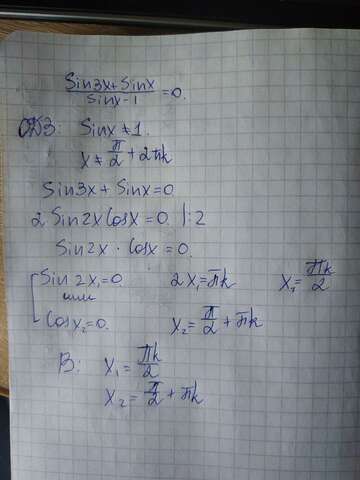 Sin3x+Sinx / Sinx-1 =0.
ОДЗ: Sinx≠1.
x≠π/2+2πk
Sin3x+Sinx=0
2Sin2xCosx=0. |:2
Sin2x·Cosx=0.
Sin2x₁=0. 2x₁=πk x₁=πk/2
или
Cosx₂=0. x₂=π/2+πk
В: x₁=πk/2
x₂=π/2+πk